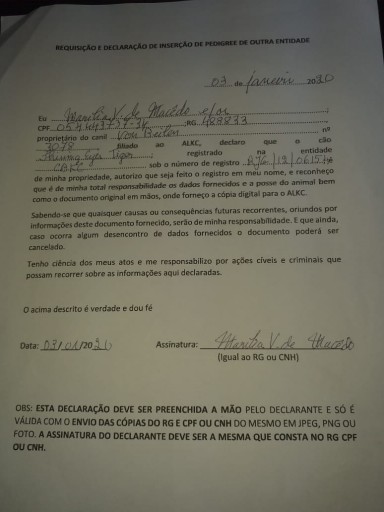 REQUISIÇÃO E DECLARAÇÃO DE INSERÇÃO DE PEDIGREE DE OUTRA ENTIDADE
03 de janeiro 2020
Eu Marília V. de Macêdo
CPF RG 489833
proprietário do canil Von Berlin nº
3078 filiado ao ALKC, declaro que o cão
Tiger registrado na entidade
CBKC sob o número de registro RJG/19/0615
de minha propriedade, autorizo que seja feito o registro em meu nome, e reconheço
que é de minha total responsabilidade os dados fornecidos e a posse do animal bem
como o documento original em mãos, onde forneço a cópia digital para o ALKC.
Sabendo-se que quaisquer causas ou consequências futuras recorrentes, oriundos por
informações deste documento fornecido, serão de minha responsabilidade. E que ainda,
caso ocorra algum desencontro de dados fornecidos o documento poderá ser
cancelado.
Tenho ciência dos meus atos e me responsabilizo por ações cíveis e criminais que
possam recorrer sobre as informações aqui declaradas.
O acima descrito é verdade e dou fé
Data: 03/01/2020 Assinatura: Marília V. de Macêdo
(Igual ao RG ou CNH)
OBS: ESTA DECLARAÇÃO DEVE SER PREENCHIDA A MÃO PELO DECLARANTE E SÓ É
VÁLIDA COM O ENVIO DAS CÓPIAS DO RG E CPF OU CNH DO MESMO EM JPEG, PNG OU
FOTO. A ASSINATURA DO DECLARANTE DEVE SER A MESMA QUE CONSTA NO RG CPF
OU CNH.